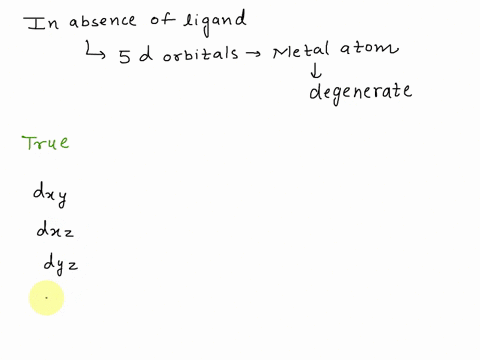 In absence of ligand
↳ 5 d orbitals → Metal atom
↓
degenerate
True
dxy
dxz
dyz